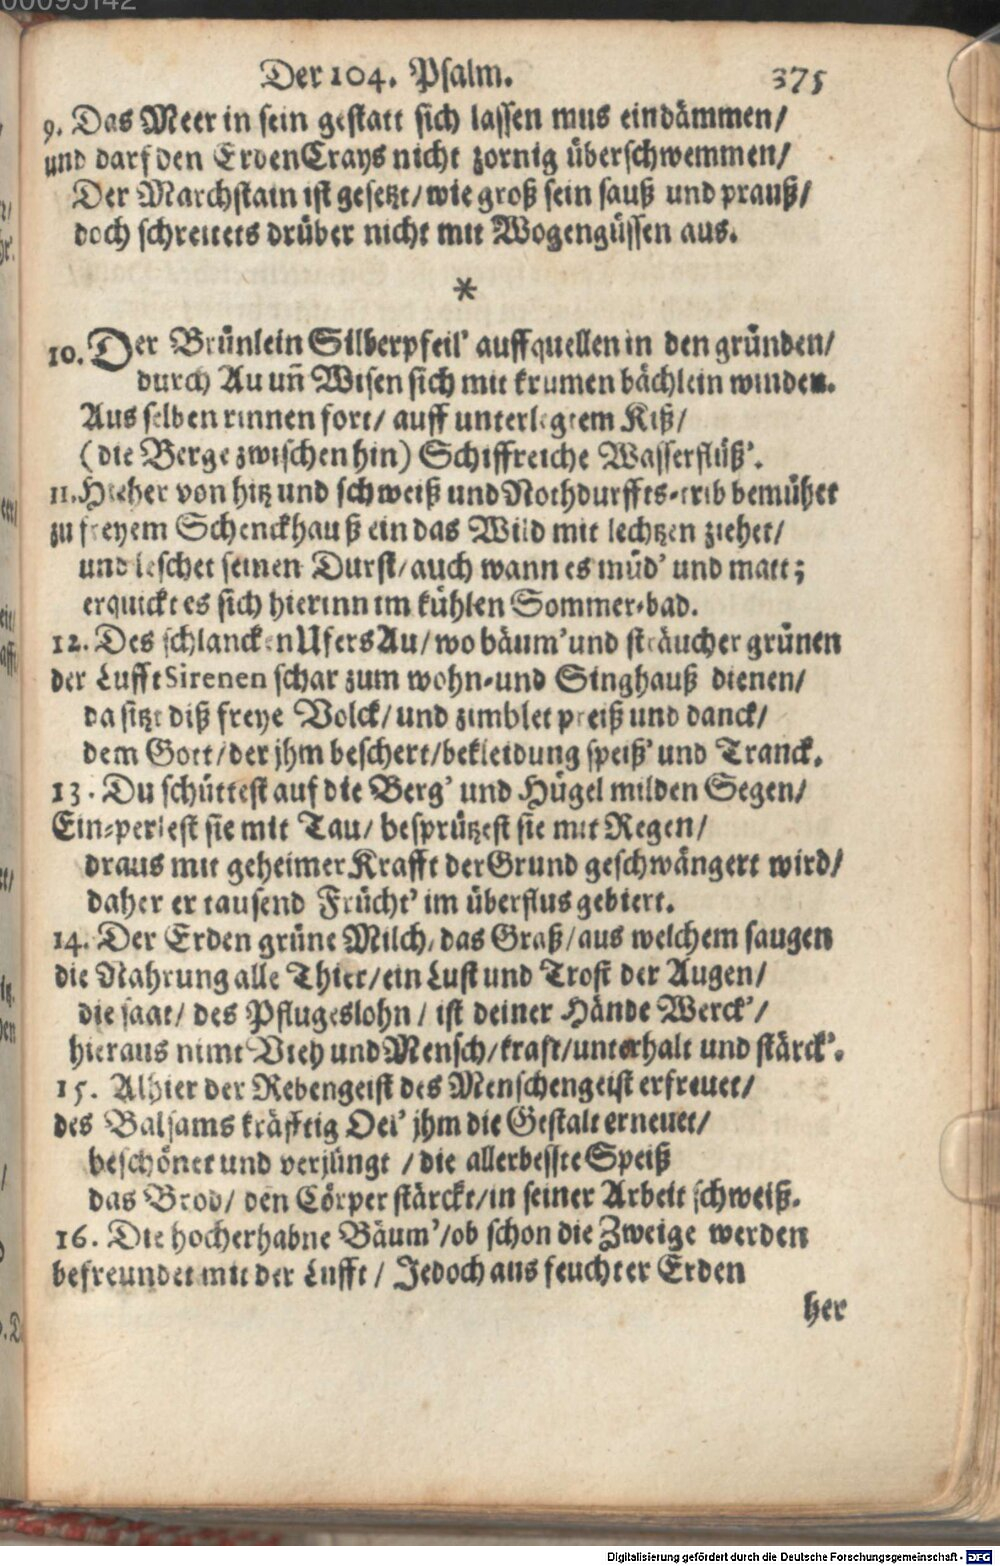 00095142
Der 104. Psalm. 375
9. Das Meer in sein gestatt sich lassen mus eindämmen/
und darf den ErdenCrays nicht zornig überschwemmen/
Der Marchstain ist gesetzt/ wie groß sein sauß und prauß/
doch schreitets drüber nicht mit Wogengüssen aus.
*
10. Der Brünlein Silberpfeil' auffquellen in den gründen/
durch Au uñ Wisen sich mit krumen bächlein winden.
Aus selben rinnen fort/ auff unterlegtem Kiß/
(die Berge zwischen hin) Schiffreiche Wasserflüß'.
11. Hieher von hitz und schweiß und Nothdurffts-trib bemühet
zu freyem Schenckhauß ein das Wild mit lechtzen ziehet/
und leschet seinen Durst/ auch wann es müd' und matt;
erquickt es sich hierinn im kühlen Sommer-bad.
12. Des schlancken Ufers Au/ wo bäum' und sträucher grünen
der Lufft Sirenen schar zum wohn-und Singhauß dienen/
da sitzt diß freye Volck/ und zimblet preiß und danck/
dem Gott/ der jhm beschert/ bekleidung speiß' und Tranck.
13. Du schüttest auf die Berg' und Hügel milden Segen/
Ein-perlest sie mit Tau/ besprützest sie mit Regen/
draus mit geheimer Krafft der Grund geschwängert wird/
daher er tausend Frücht' im überflus gebiert.
14. Der Erden grüne Milch, das Graß/ aus welchem saugen
die Nahrung alle Thier/ ein Lust und Trost der Augen/
die saat/ des Pflugeslohn/ ist deiner Hände Werck'/
hieraus nimt Vieh und Mensch/ kraft/ unterhalt und stärck'.
15. Alhier der Rebengeist des Menschengeist erfreuet/
des Balsams kräfftig Oel' jhm die Gestalt erneuet/
beschönet und verjüngt / die allerbesste Speiß
das Brod/ den Cörper stärckt/ in seiner Arbeit schweiß.
16. Die hocherhabne Bäum'/ ob schon die Zweige werden
befreundet mit der Lufft / Jedoch aus feuchter Erden
her
Digitalisierung gefördert durch die Deutsche Forschungsgemeinschaft - DFG